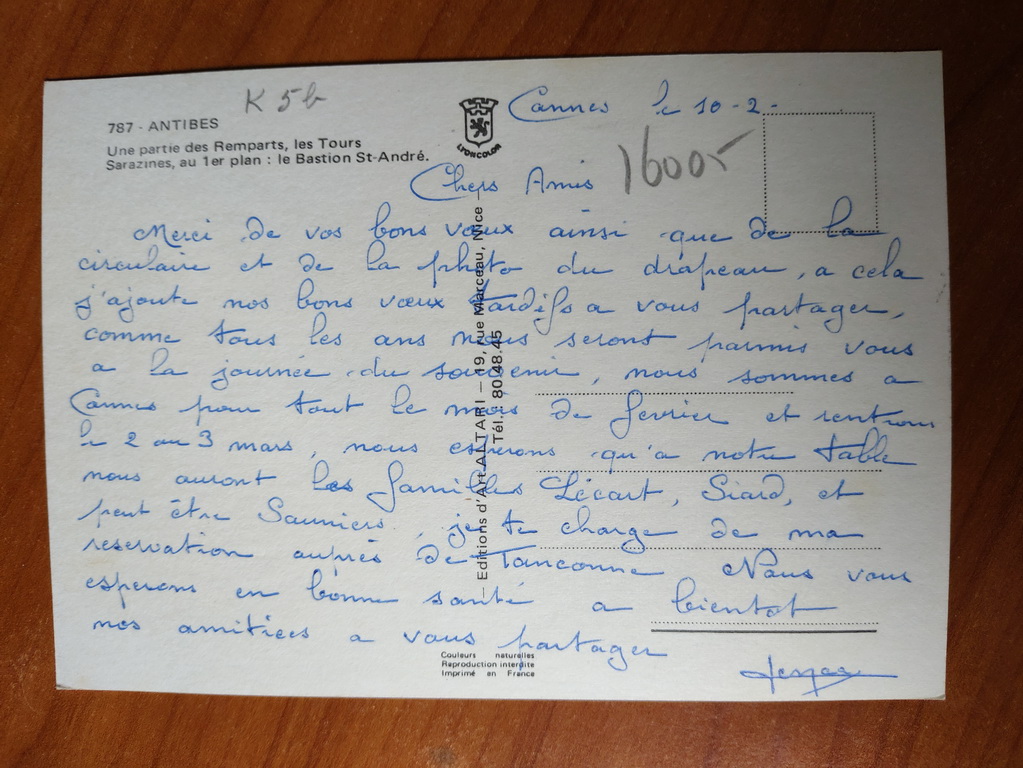 K 5b
787 - ANTIBES
Une partie des Remparts, les Tours
Sarazines, au 1er plan : le Bastion St-André.
LYONCOLOR
Cannes le 10-2-
16005
Chers Amis
Merci de vos bons vœux ainsi que de la
circulaire et de la photo du drapeau, a cela
j'ajoute nos bons vœux tardifs a vous partager,
comme tous les ans nous seront parmis vous
a la journée du souvenir, nous sommes a
Cannes pour tout le mois de fevrier et rentrons
le 2 au 3 mars, nous esperons qu'a notre table
nous auront les familles Lécart, Siard, et
peut être Sauniers, je te charge de ma
reservation auprès de Tanconne Nous vous
esperons en bonne santé a bientot
nos amitiées a vous partager
Editions d'Art ALTARI — 19, rue Marceau, Nice —
Tél.: 80.48.45
Couleurs naturelles
Reproduction interdite
Imprimé en France